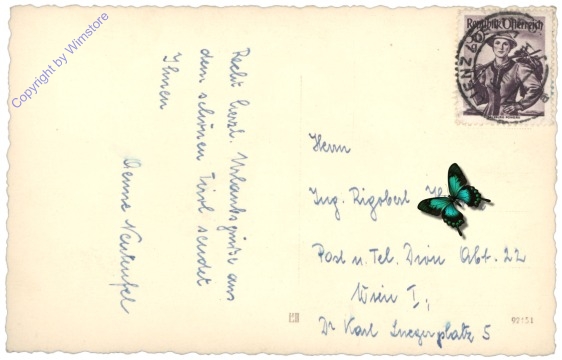 Copyright by Wimstore
Recht herzl. Urlaubsgrüße aus
dem schönen Tirol sendet
Ihnen
Republik Österreich
Herrn
Ing. Rigobert
Post u. Tel. Dion Abt. 22
Wien I,
Dr Karl Luegerplatz 5